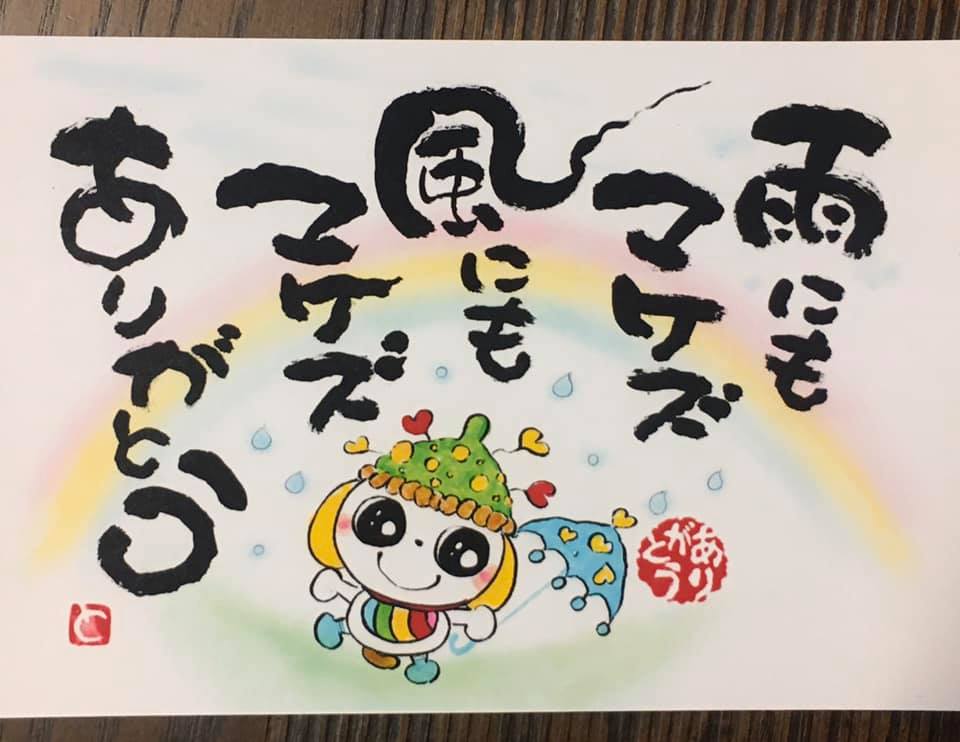 雨にも
マケズ
風にも
マケズ
ありがとう
あり
がとう